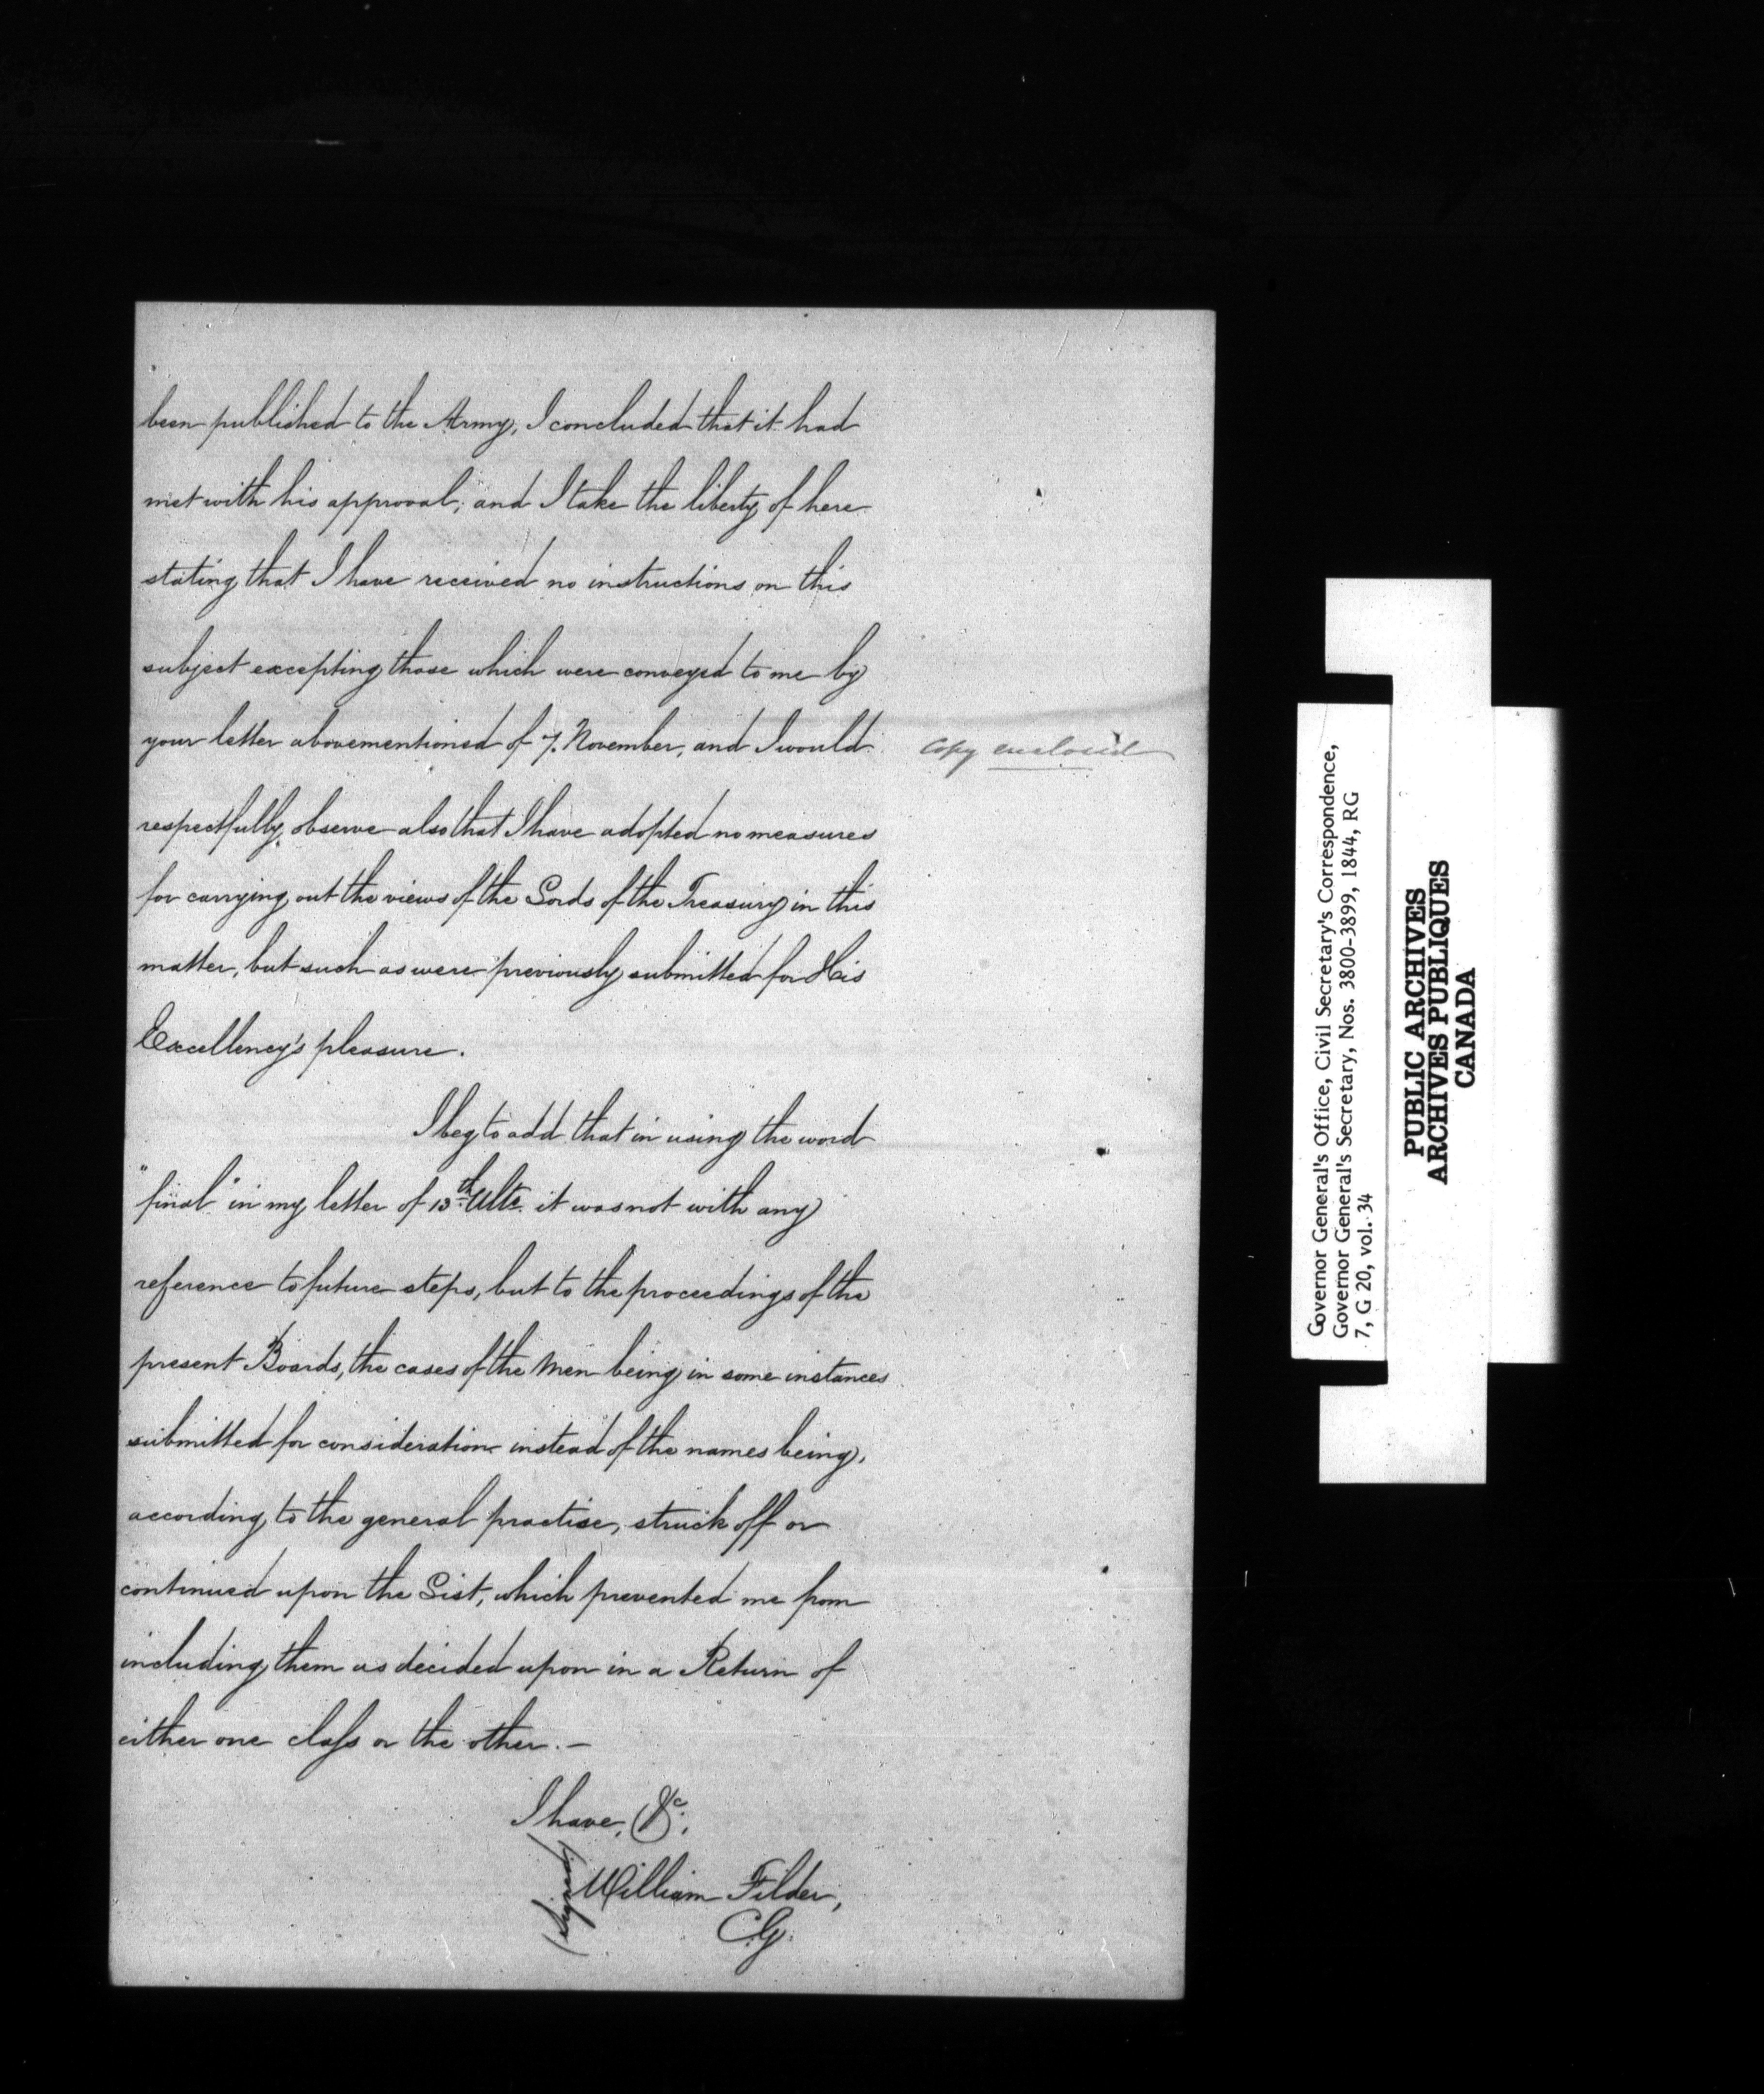 been published to the Army, I concluded that it had
met with his approval; and I take the liberty of here
stating that I have received no instructions on this
subject excepting those which were conveyed to me by
your letter abovementioned of 7. November, and I would
Copy enclosed
respectfully observe also that I have adopted no measures
for carrying out the views of the Lords of the Treasury in this
matter, but such as were previously submitted for His
Excellency's pleasure.
I beg to add that in using the word
"final" in my letter of 13th Ulto. it was not with any
reference to future steps, but to the proceedings of the
present Boards, the cases of the Men being in some instances
submitted for consideration instead of the names being,
according to the general practise, struck off or
continued upon the List, which prevented me from
including them as decided upon in a Return of
either one class or the other. —
I have, &c.
(Signed) William Filder,
C.G.
Governor General's Office, Civil Secretary's Correspondence,
Governor General's Secretary, Nos. 3800-3899, 1844, RG
7, G 20, vol. 34
PUBLIC ARCHIVES
ARCHIVES PUBLIQUES
CANADA